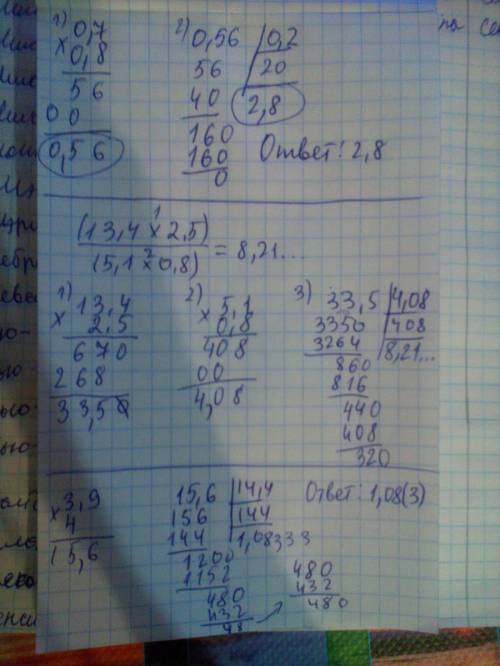 1) 0,7
x 0,8
56
00
0,56
2) 0,56 | 0,2
56 | 20
40 2,8
160
160
0
Ответ: 2,8
(13,4 x¹ 2,5)
(5,1 x² 0,8)
= 8,21...
1) 13,4
x 2,5
670
268
33,50
2) 5,1
x 0,8
408
00
4,08
3) 33,5 | 4,08
3350 | 408
3264 8,21...
860
816
440
408
320
x 3,9
4
15,6
15,6 | 14,4
156 | 144
144 1,08333
1200
1152
480
432
48
480
432
480
Ответ: 1,08(3)